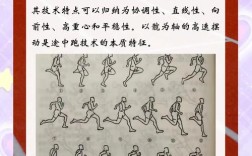 其技术特点可以归纳为协调性、直线性、向
前性、高重心和平稳性。以髋为轴的高速摆
动是途中跑技术的本质特征。